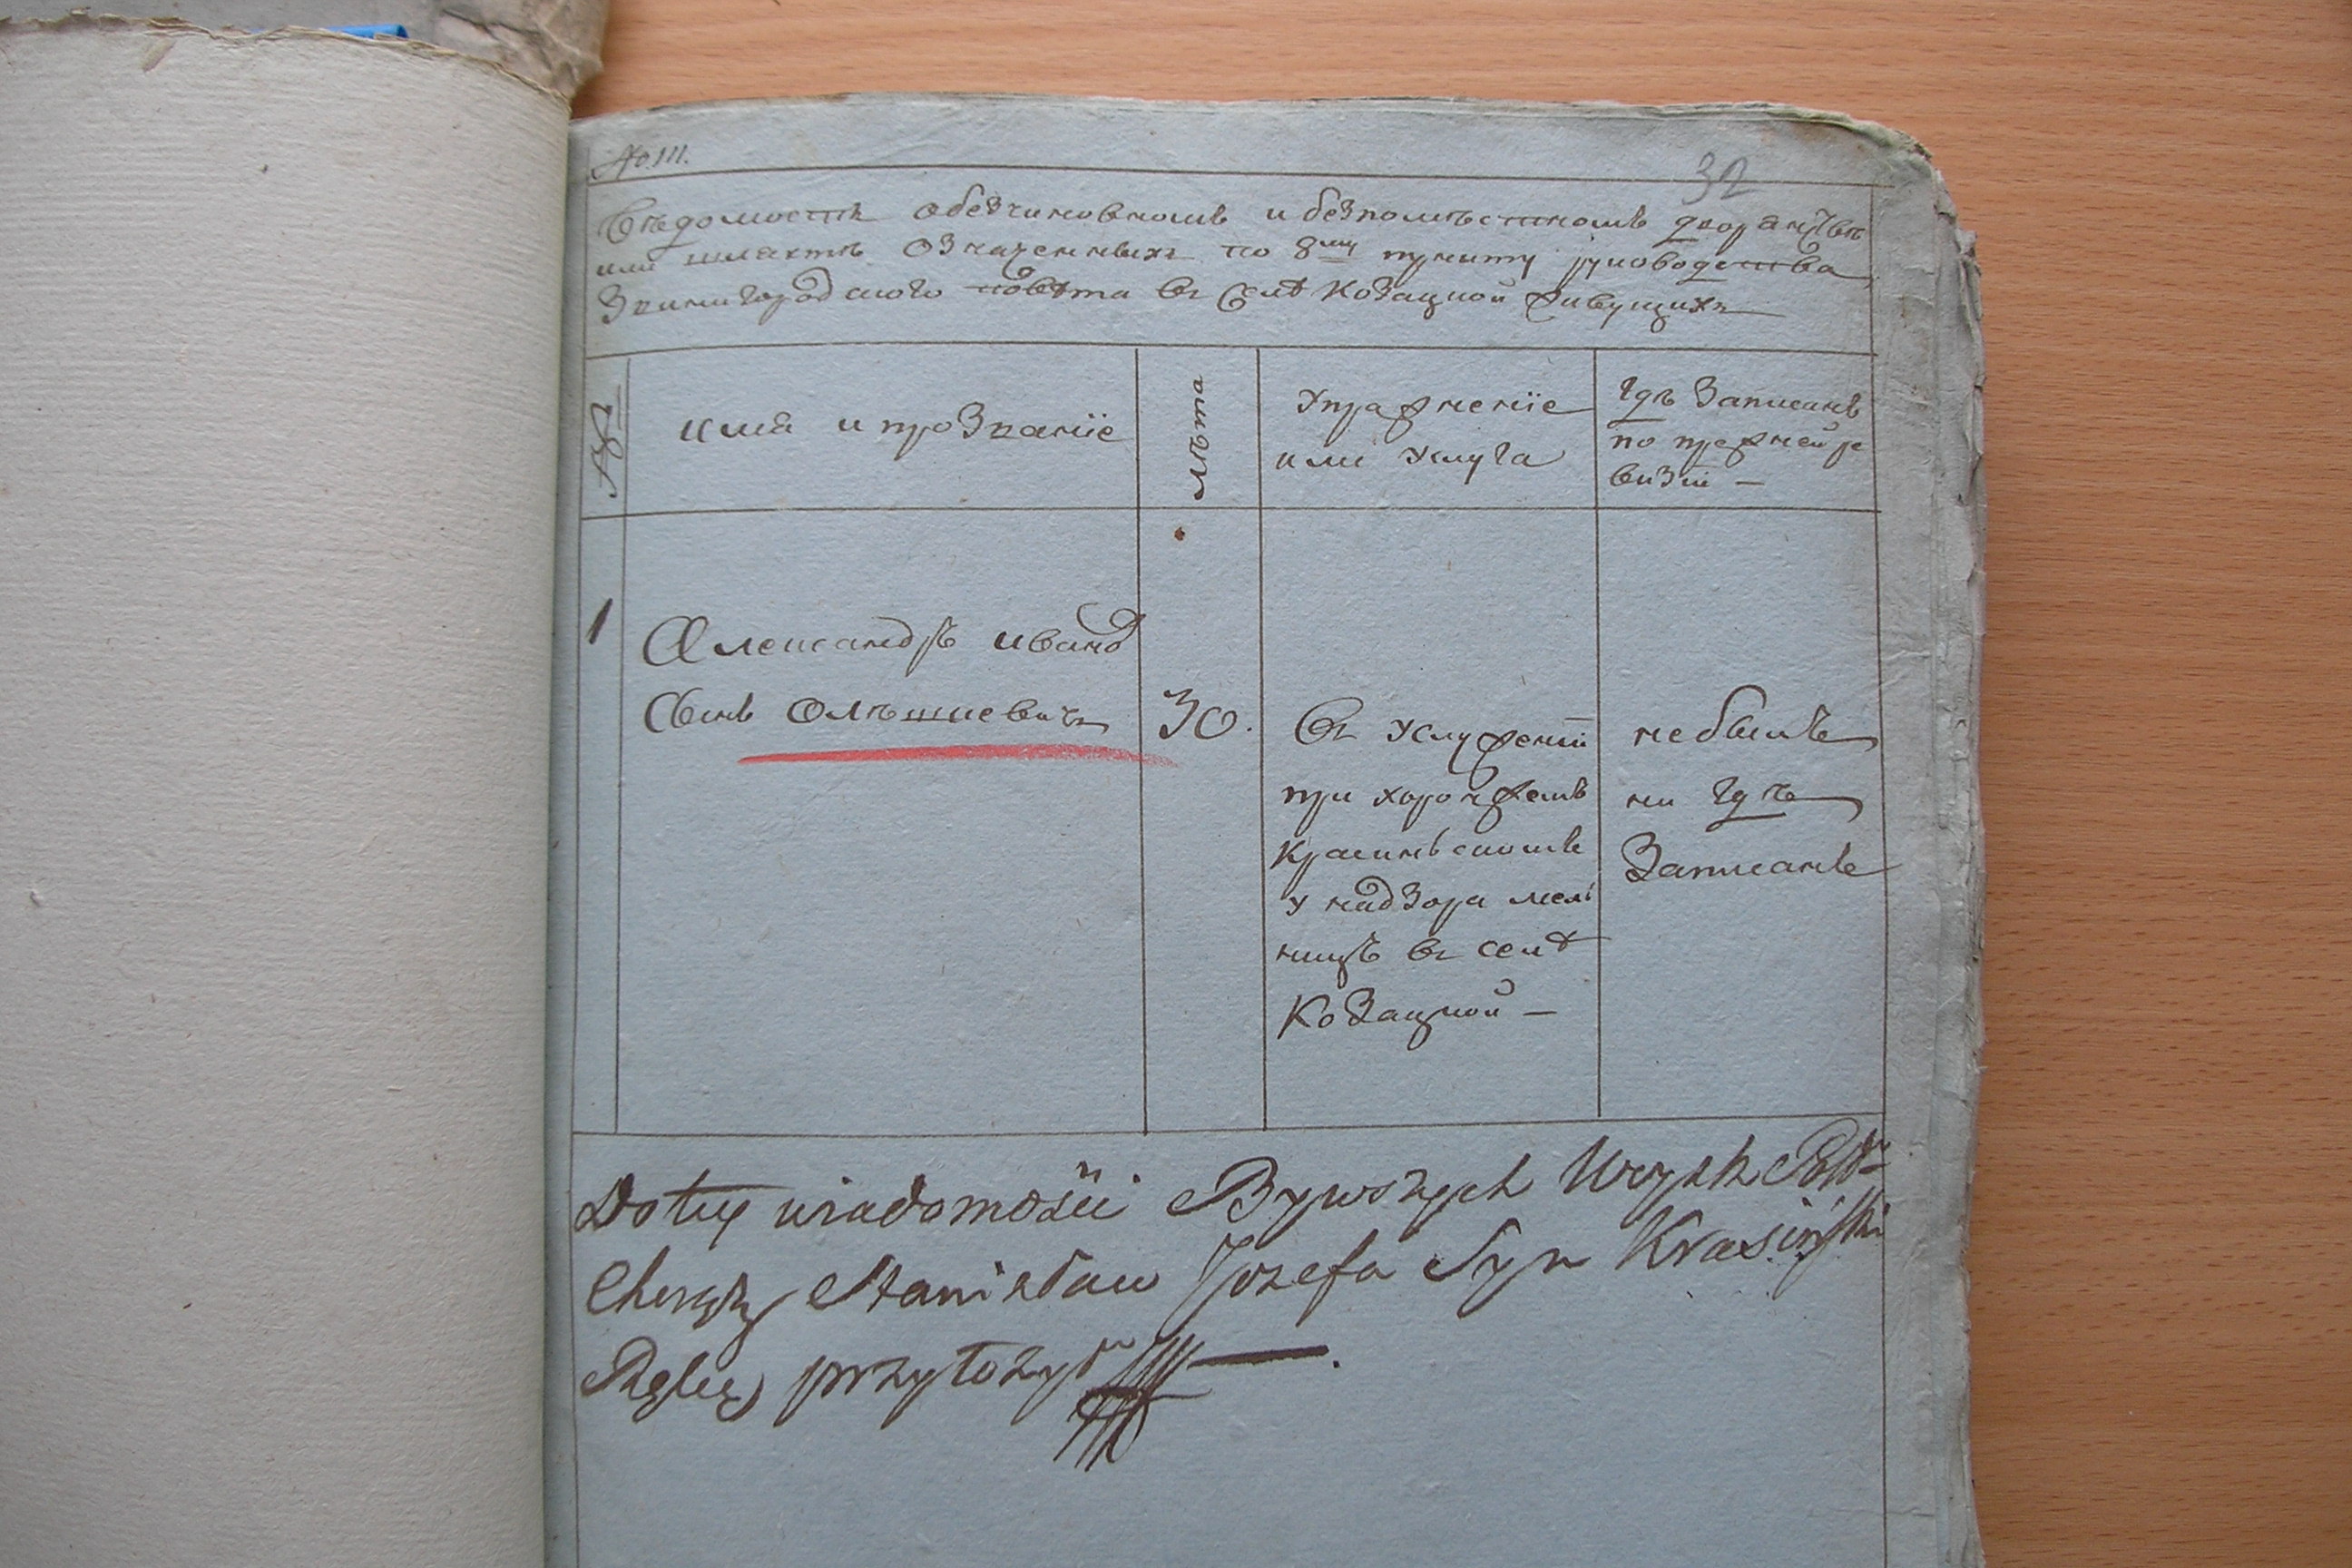 No. III.
32
Вѣдомость обезчиновномъ и безпомѣстномъ дворянствѣ
или шляхтѣ означенныхъ по 8му пункту руководства
Звинигородского повѣта въ Селѣ Козацкой живущихъ
№
имя и прозваніе
лѣта
Упражненіе
или услуга
Гдѣ Записанъ
по прежней ре
визіи —
1
Александръ иванов
Сынъ Олѣшкевичъ
30.
Въ услуженіи
при хоронжемъ
Красинскомъ
у надзора мель
ницъ въ селѣ
Козацкой —
небылъ
ни гдѣ
Записанъ
Do tey wiadomości Bywszych Woysk
Chorąży Stanisław Jozefa Syn Krasiński
Rękę przyłożył